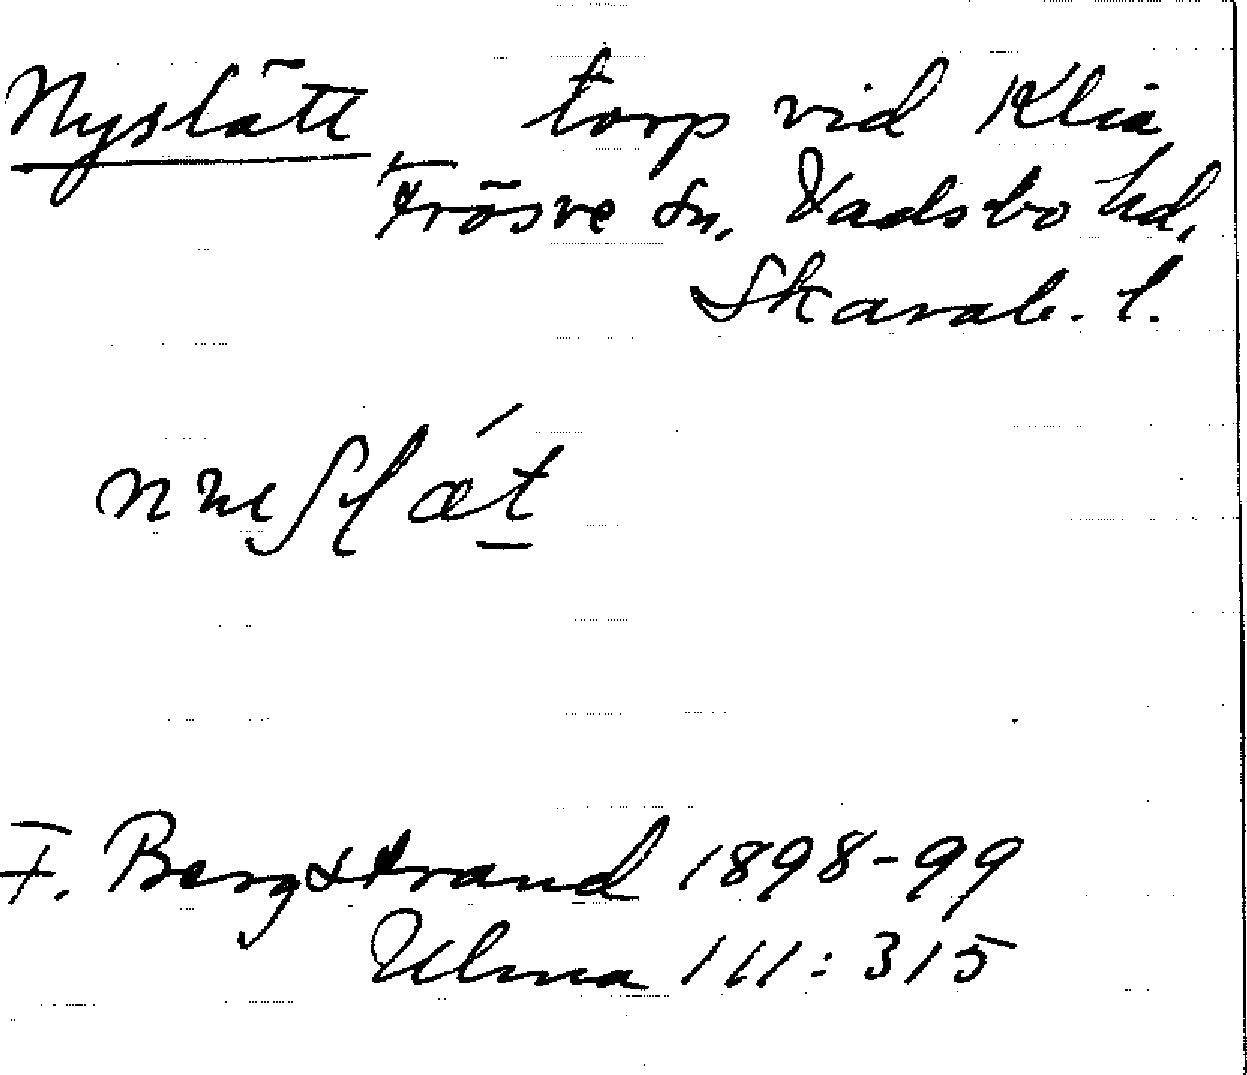 Nyslätt torp vid Klia
Frösve sn, Vadsbo hd,
Skarab. l.
F. Bergstrand 1898-99
Ulma 111:315